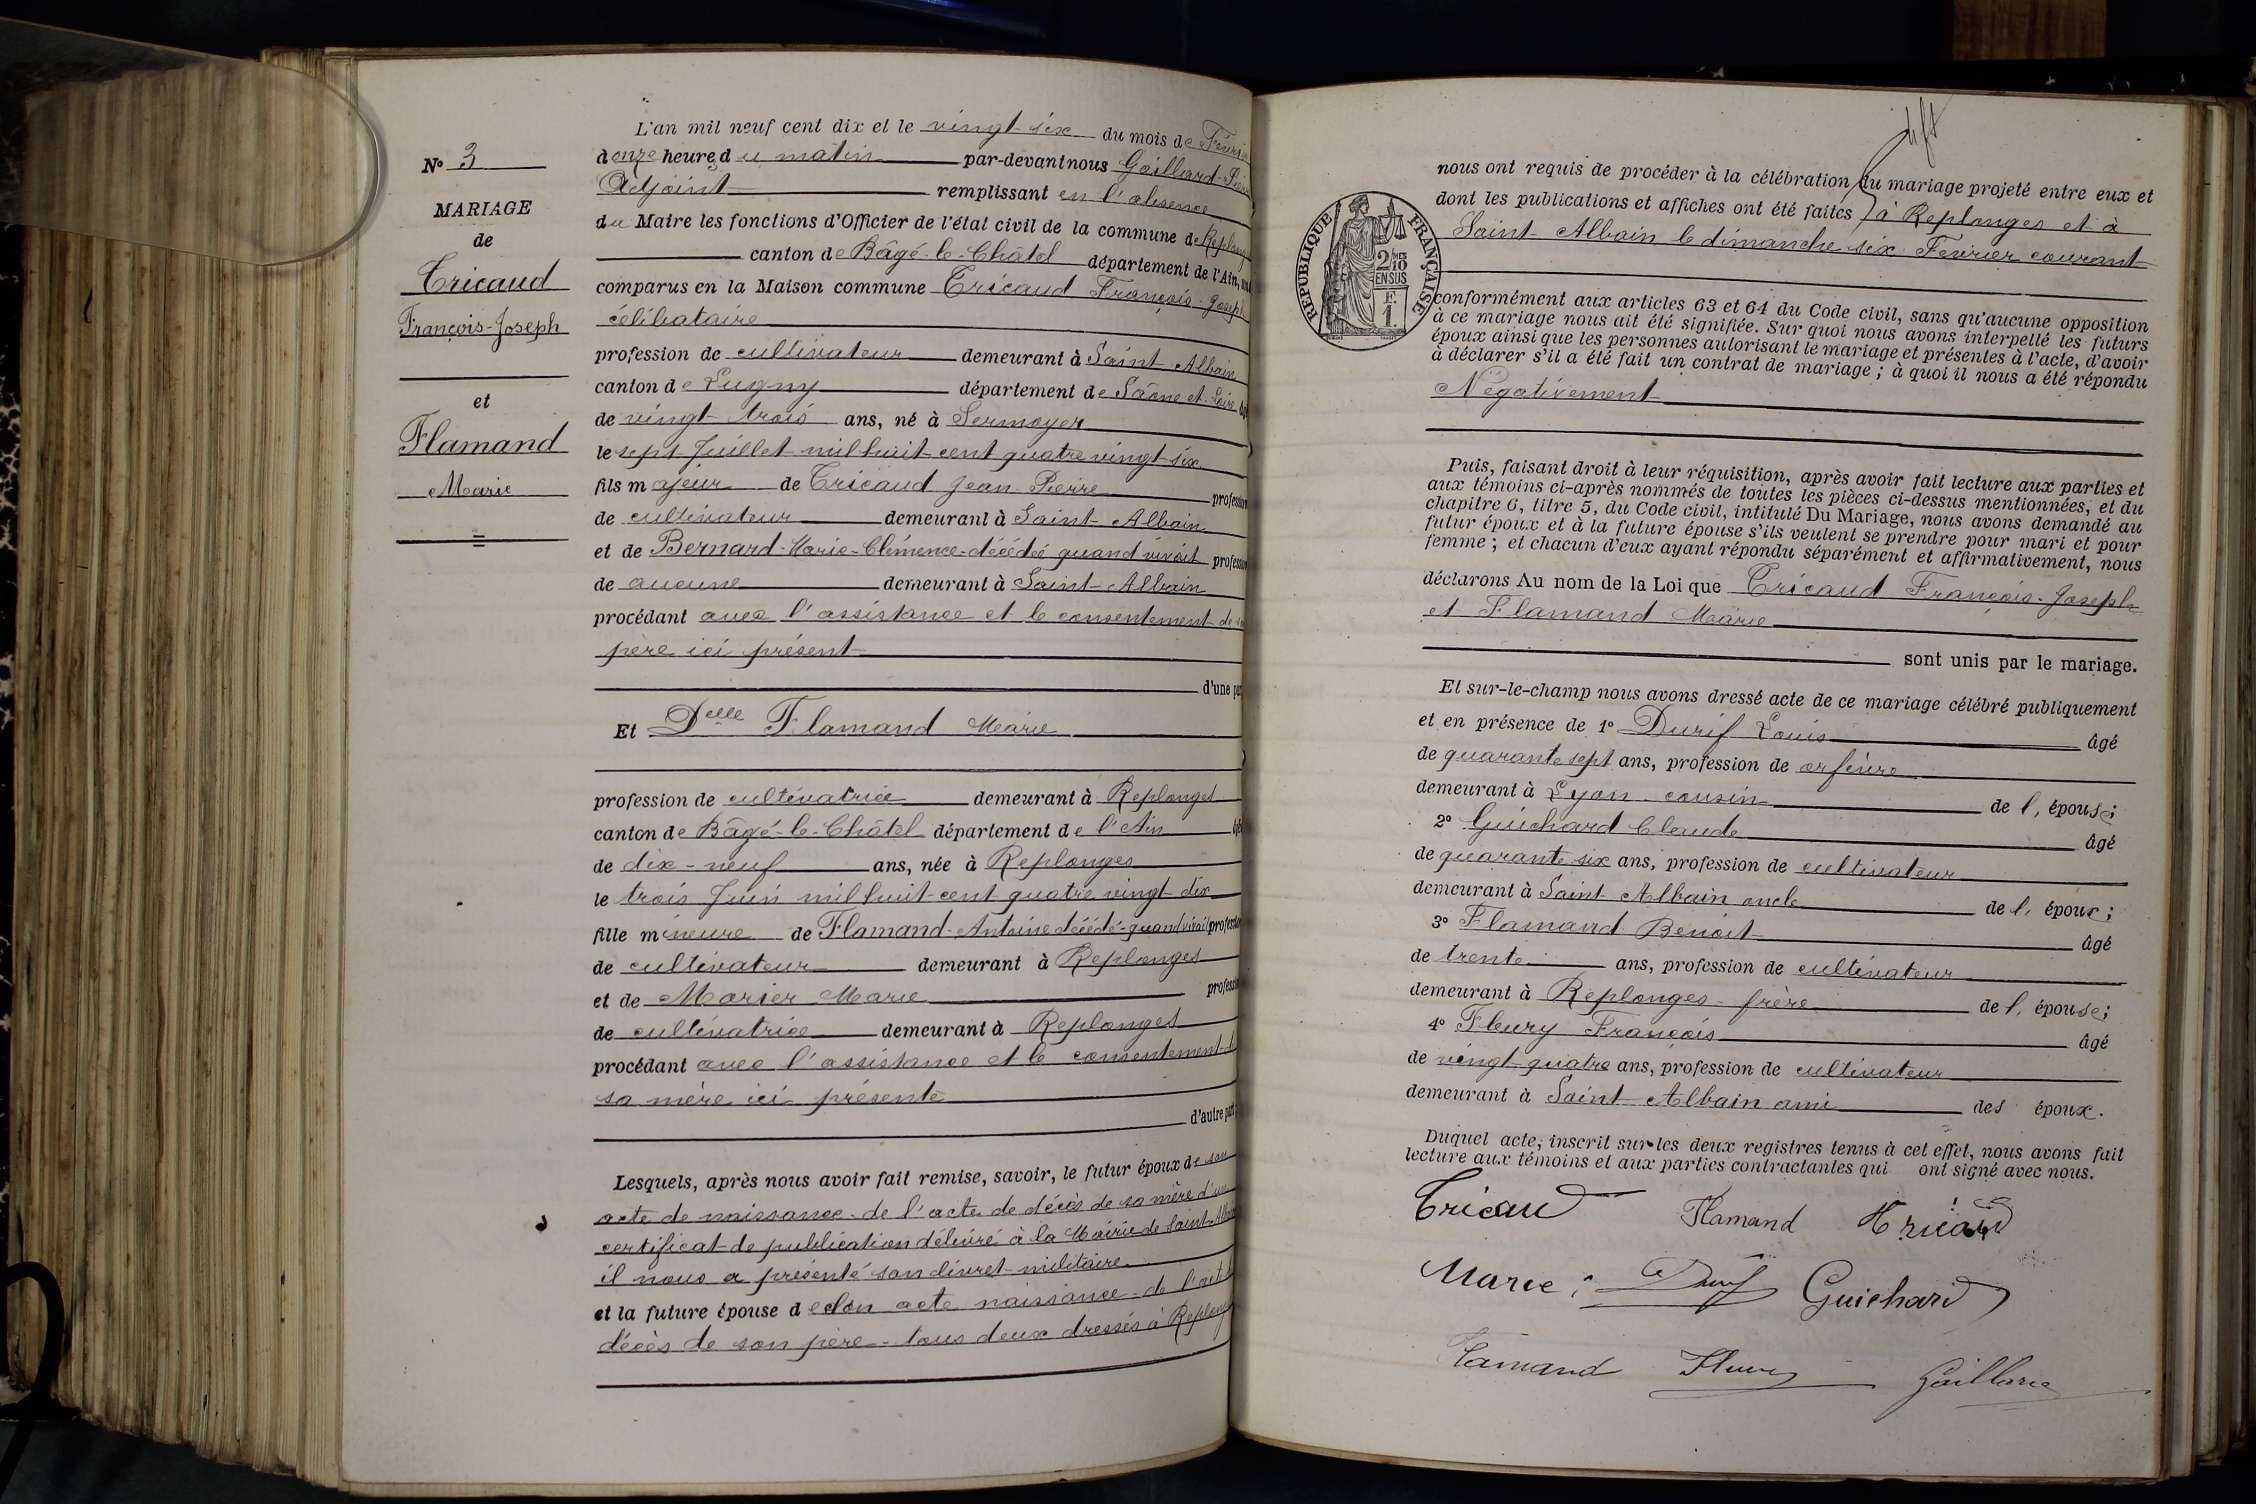 N° 3
MARIAGE
de
Tricaud
François-Joseph
et
Flamand
Marie
L'an mil neuf cent dix et le vingt-six du mois de Février
à onze heures du matin par-devant nous Gaillard
Adjoint remplissant en l'absence
du Maire les fonctions d'Officier de l'état civil de la commune de Replonges
canton de Bâgé-le-Châtel département de l'Ain, ont
comparus en la Maison commune Tricaud François-Joseph
célibataire
profession de cultivateur demeurant à Saint-Albain
canton de Lugny département de Saône et Loire âgé
de vingt-trois ans, né à Sermoyer
le sept Juillet mil huit cent quatre vingt-six
fils majeur de Tricaud Jean-Pierre profession
de cultivateur demeurant à Saint-Albain
et de Bernard-Marie-Clémence-décédée quand vivait profession
de aucune demeurant à Saint-Albain
procédant avec l'assistance et le consentement de son
père ici présent
d'une part
Et Delle Flamand Marie
profession de cultivatrice demeurant à Replonges
canton de Bâgé-le-Châtel département de l'Ain âgée
de dix-neuf ans, née à Replonges
le trois Juin mil huit-cent quatre vingt-dix
fille mineure de Flamand-Antoine décédé-quand vivait profession
de cultivateur demeurant à Replonges
et de Marier Marie profession
de cultivatrice demeurant à Replonges
procédant avec l'assistance et le consentement de
sa mère ici présente
d'autre part
Lesquels, après nous avoir fait remise, savoir, le futur époux de son
acte de naissance-de l'acte de décès de sa mère d'un
certificat de publication délivré à la Mairie de Saint-Albain
il nous a présenté son livret militaire.
et la future épouse de son acte naissance-de l'acte
décès de son père-tous deux dressés à Replonges
nous ont requis de procéder à la célébration du mariage projeté entre eux et
dont les publications et affiches ont été faites à Replonges et à
Saint-Albain le dimanche six Février courant
RÉPUBLIQUE FRANÇAISE
2/10
EN SUS
1F.
conformément aux articles 63 et 64 du Code civil, sans qu'aucune opposition
à ce mariage nous ait été signifiée. Sur quoi nous avons interpellé les futurs
époux ainsi que les personnes autorisant le mariage et présentes à l'acte, d'avoir
à déclarer s'il a été fait un contrat de mariage ; à quoi il nous a été répondu
Négativement
Puis, faisant droit à leur réquisition, après avoir fait lecture aux parties et
aux témoins ci-après nommés de toutes les pièces ci-dessus mentionnées, et du
chapitre 6, titre 5, du Code civil, intitulé Du Mariage, nous avons demandé au
futur époux et à la future épouse s'ils veulent se prendre pour mari et pour
femme ; et chacun d'eux ayant répondu séparément et affirmativement, nous
déclarons Au nom de la Loi que Tricaud François-Joseph
et Flamand Marie
sont unis par le mariage.
Et sur-le-champ nous avons dressé acte de ce mariage célébré publiquement
et en présence de 1° Durif Louis âgé
de quarante sept ans, profession de orfèvre
demeurant à Lyon-cousin de l, épouse;
2° Guichard Claude âgé
de quarante six ans, profession de cultivateur
demeurant à Saint Albain oncle de l, époux ;
3° Flamand Benoit âgé
de trente ans, profession de cultivateur
demeurant à Replonges-frère de l, épouse;
4° Fleury François âgé
de vingt quatre ans, profession de cultivateur
demeurant à Saint-Albain ami des époux.
Duquel acte, inscrit sur les deux registres tenus à cet effet, nous avons fait
lecture aux témoins et aux parties contractantes qui ont signé avec nous.
Tricaud Flamand Tricaud
Marie Durif Guichard
Flamand Fleury Gaillard